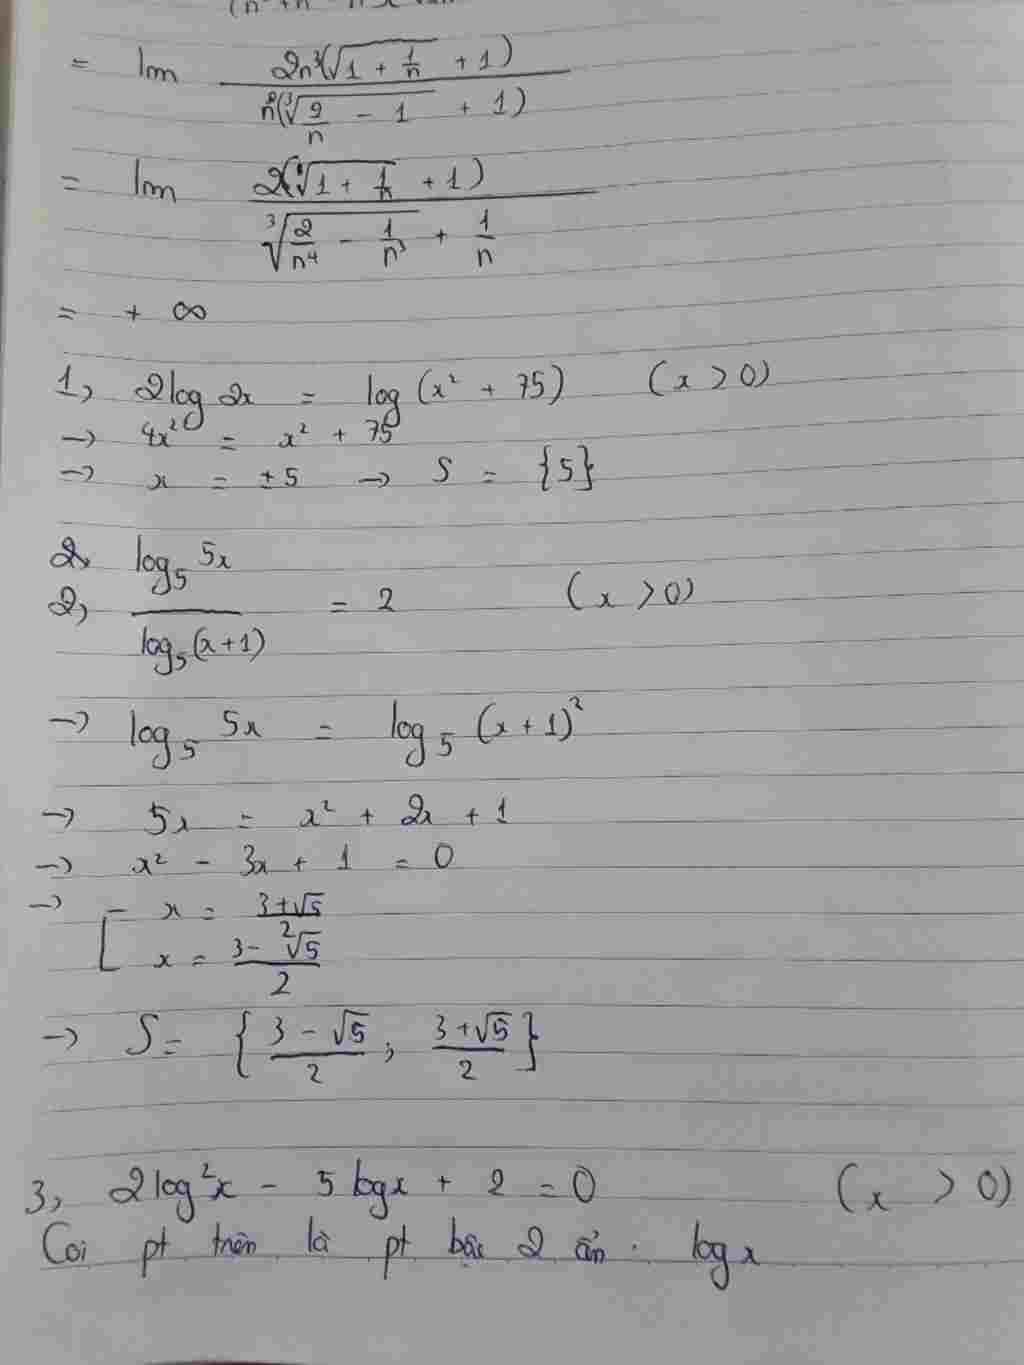 = lim 2n³(√(1 + 1/n) + 1) / n²(³√(2/n - 1) + 1)
= lim 2(√(1 + 1/n) + 1) / (³√(2/n⁴ - 1/n³) + 1/n)
= + ∞
1, 2log 2x = log (x² + 75) (x > 0)
→ 4x² = x² + 75
→ x = ±5 → S = {5}
2,
2, log₅ 5x / log₅(x+1) = 2 (x > 0)
→ log₅ 5x = log₅ (x + 1)²
→ 5x = x² + 2x + 1
→ x² - 3x + 1 = 0
→ [ x = (3+√5)/2
x = (3-√5)/2
→ S = { (3 - √5)/2 ; (3 + √5)/2 }
3, 2log²x - 5 logx + 2 = 0 (x > 0)
Coi pt trên là pt bậc 2 ẩn logx